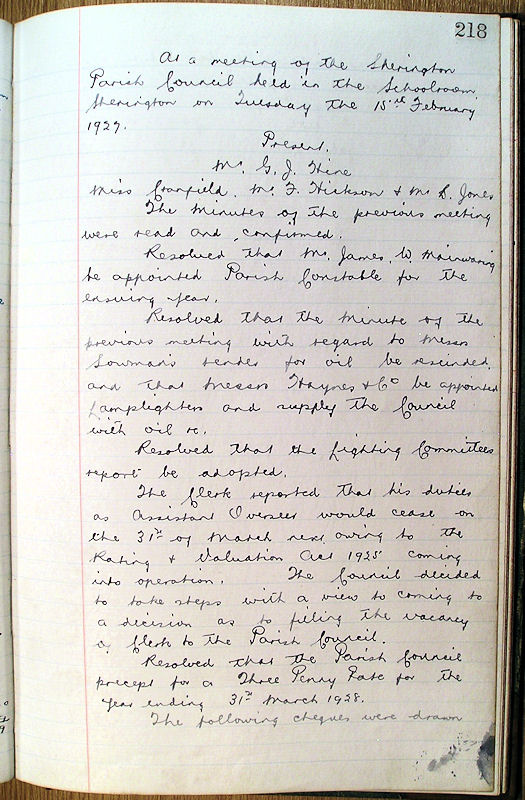 218
At a meeting of the Sherington
Parish Council held in the Schoolroom,
Sherington on Tuesday the 15th February
1927.
Present.
Mr. G. J. Hine
Miss Cranfield, Mr. F. Hickson & Mr. L. Jones
The Minutes of the previous meeting
were read and confirmed.
Resolved that Mr. James. W. Mainwaring
be appointed Parish Constable for the
ensuing year.
Resolved that the Minute of the
previous meeting with regard to Messrs
Lowman's tender for oil be rescinded,
and that Messrs Haynes & Co be appointed
Lamplighters and supply the Council
with oil &c.
Resolved that the Lighting Committees
report be adopted.
The Clerk reported that his duties
as Assistant Overseer would cease on
the 31st of March next owing to the
Rating & Valuation Act 1925 coming
into operation. The Council decided
to take steps with a view to coming to
a decision as to filling the vacancy
of Clerk to the Parish Council.
Resolved that the Parish Council
precept for a Three Penny Rate for the
Year ending 31st March 1928.
The following cheques were drawn